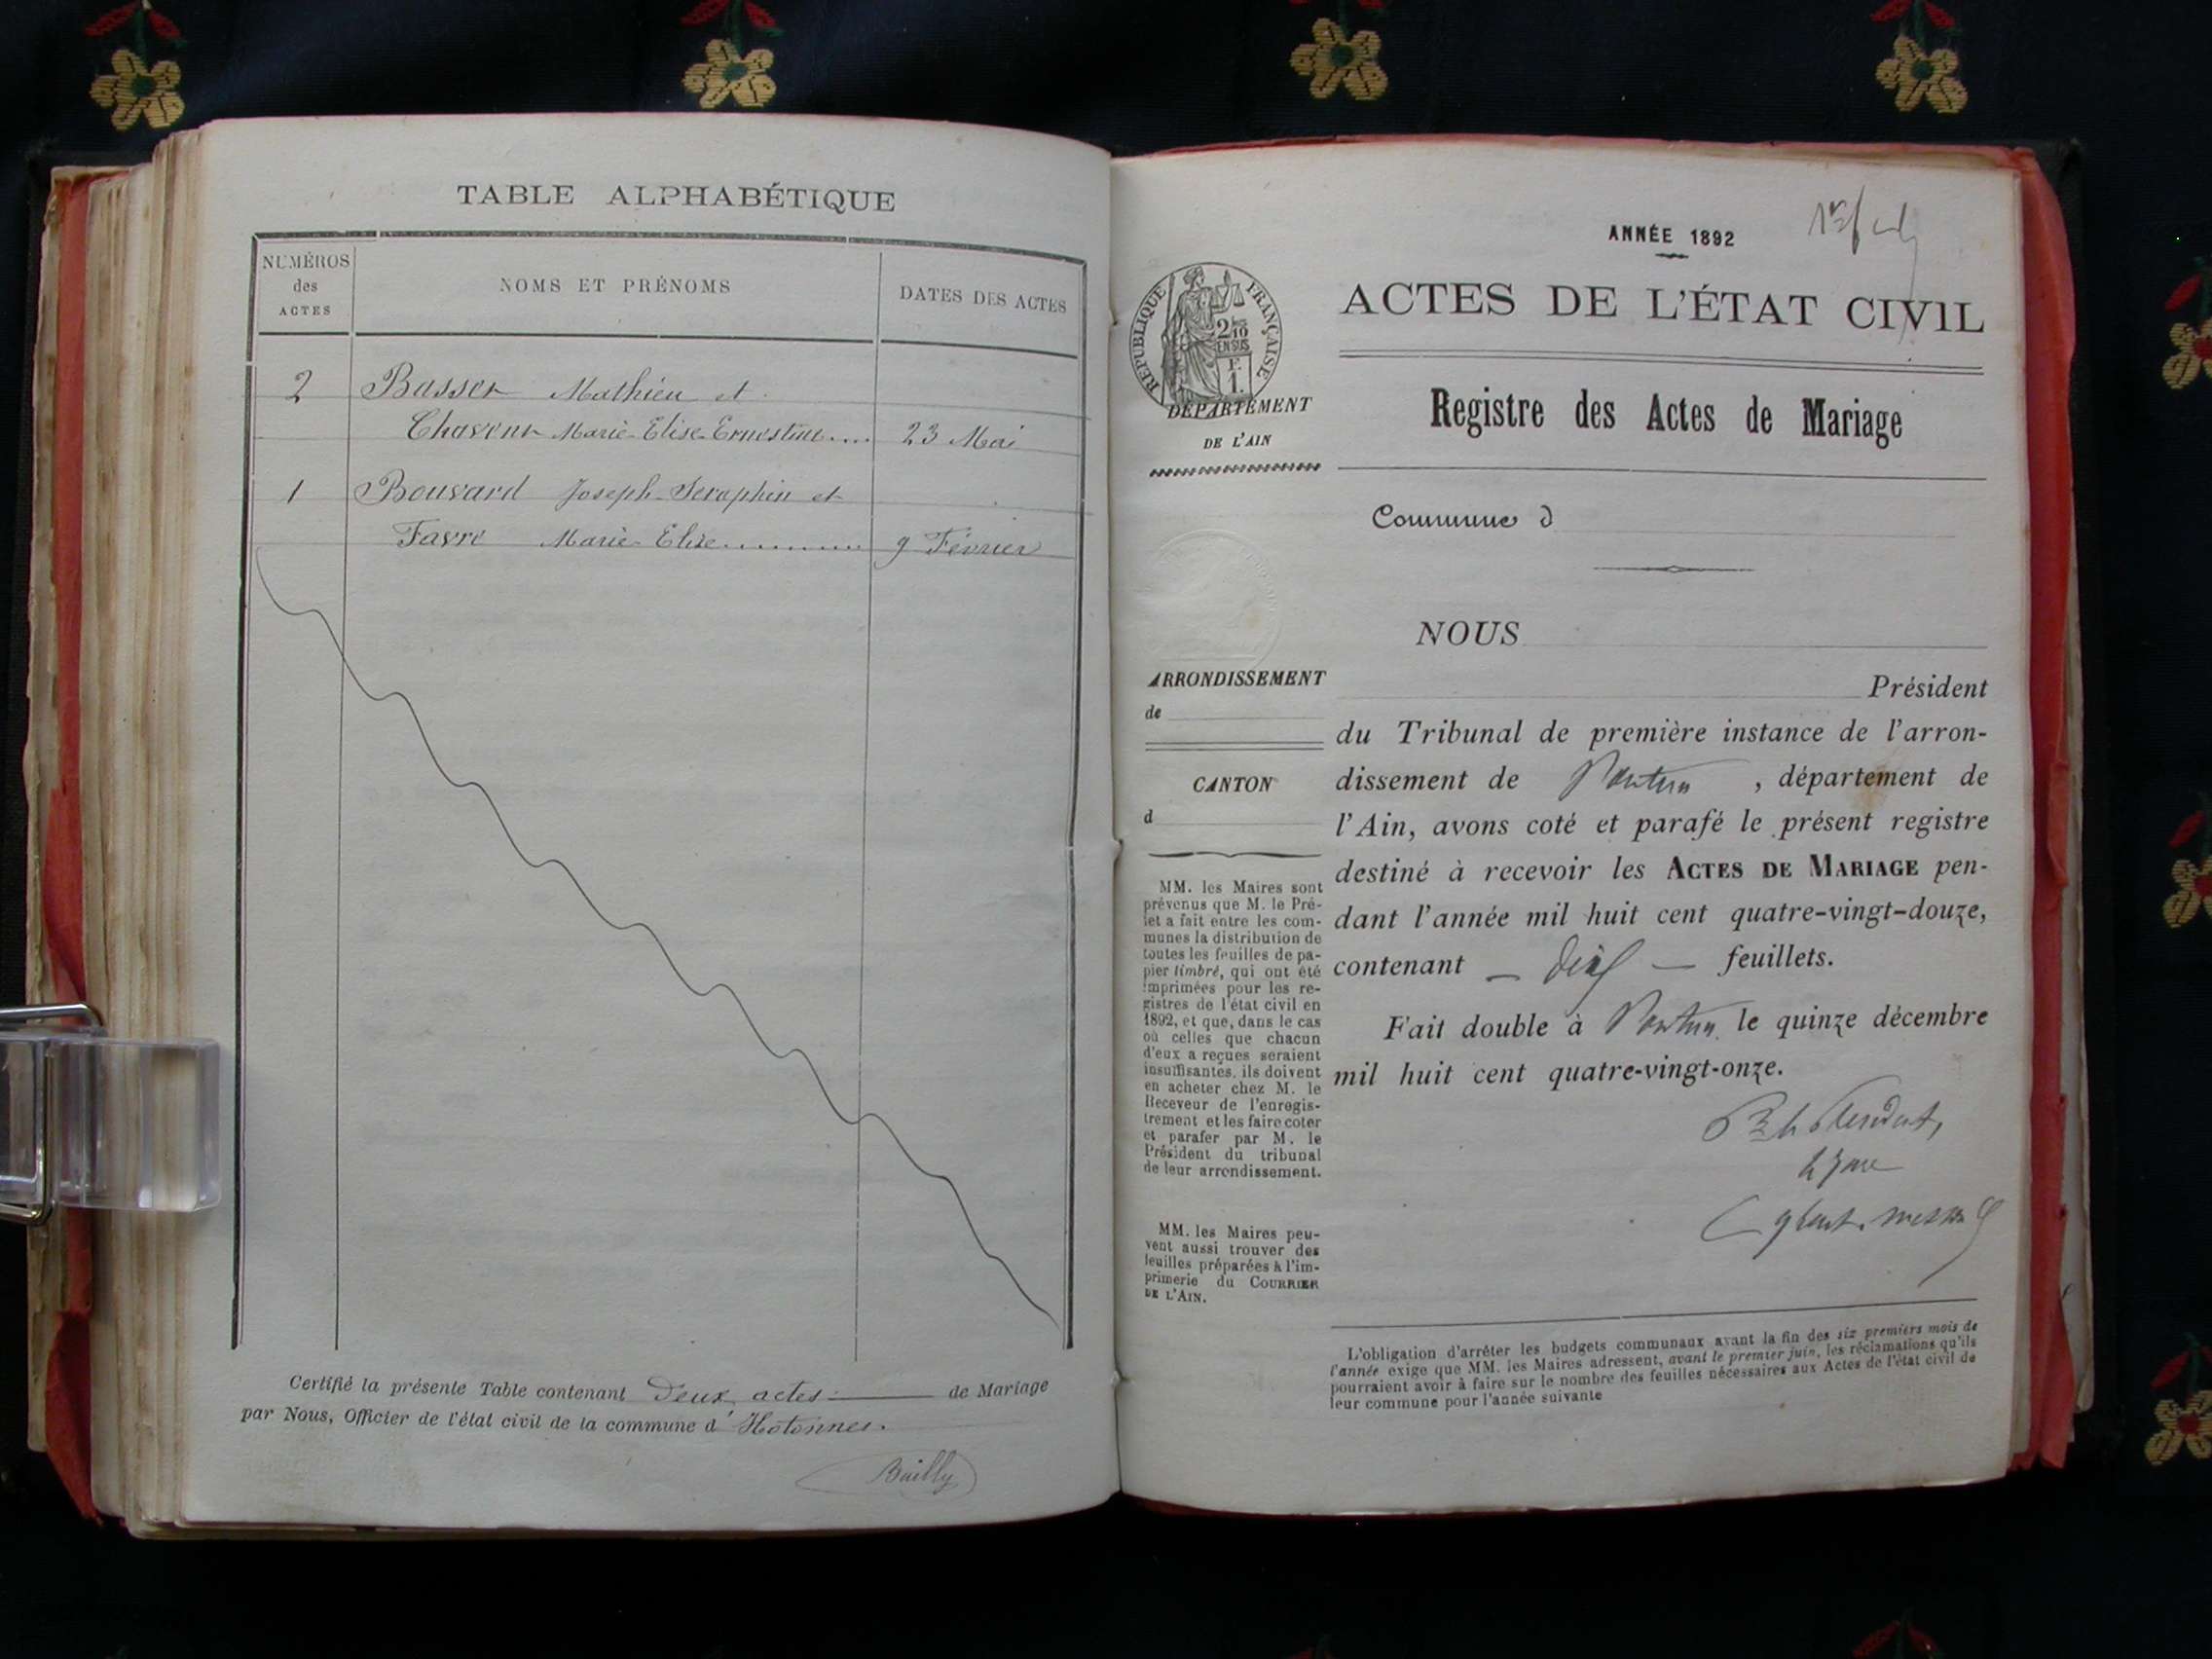 TABLE ALPHABÉTIQUE
NUMÉROS
des
ACTES
NOMS ET PRÉNOMS
DATES DES ACTES
2 Basser Mathieu et
Chavent Marie-Elise-Ernestine.... 23 Mai
1 Bouvard Joseph-Seraphin et
Favre Marie-Elise............ 9 Février
Certifié la présente Table contenant Deux actes de Mariage
par Nous, Officier de l'état civil de la commune d'Hotonnes.
Bailly
ANNÉE 1892
ACTES DE L'ÉTAT CIVIL
RÉPUBLIQUE FRANÇAISE
2/10
EN SUS
F.
1.
DÉPARTEMENT
DE L'AIN
Registre des Actes de Mariage
Commune d
NOUS
ARRONDISSEMENT
de
CANTON
d
Président
du Tribunal de première instance de l'arron-
dissement de Nantua, département de
l'Ain, avons coté et parafé le présent registre
destiné à recevoir les ACTES DE MARIAGE pen-
dant l'année mil huit cent quatre-vingt-douze,
contenant — dix — feuillets.
Fait double à Nantua, le quinze décembre
mil huit cent quatre-vingt-onze.
MM. les Maires sont
prévenus que M. le Pré-
fet a fait entre les com-
munes la distribution de
toutes les feuilles de pa-
pier timbré, qui ont été
imprimées pour les re-
gistres de l'état civil en
1892, et que, dans le cas
où celles que chacun
d'eux a reçues seraient
insuffisantes, ils doivent
en acheter chez M. le
Receveur de l'enregis-
trement et les faire coter
et parafer par M. le
Président du tribunal
de leur arrondissement.
MM. les Maires peu-
vent aussi trouver des
feuilles préparées à l'im-
primerie du COURRIER
DE L'AIN.
L'obligation d'arrêter les budgets communaux avant la fin des six premiers mois de
l'année exige que MM. les Maires adressent, avant le premier juin, les réclamations qu'ils
pourraient avoir à faire sur le nombre des feuilles nécessaires aux Actes de l'état civil de
leur commune pour l'année suivante